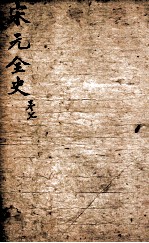 宋元全史